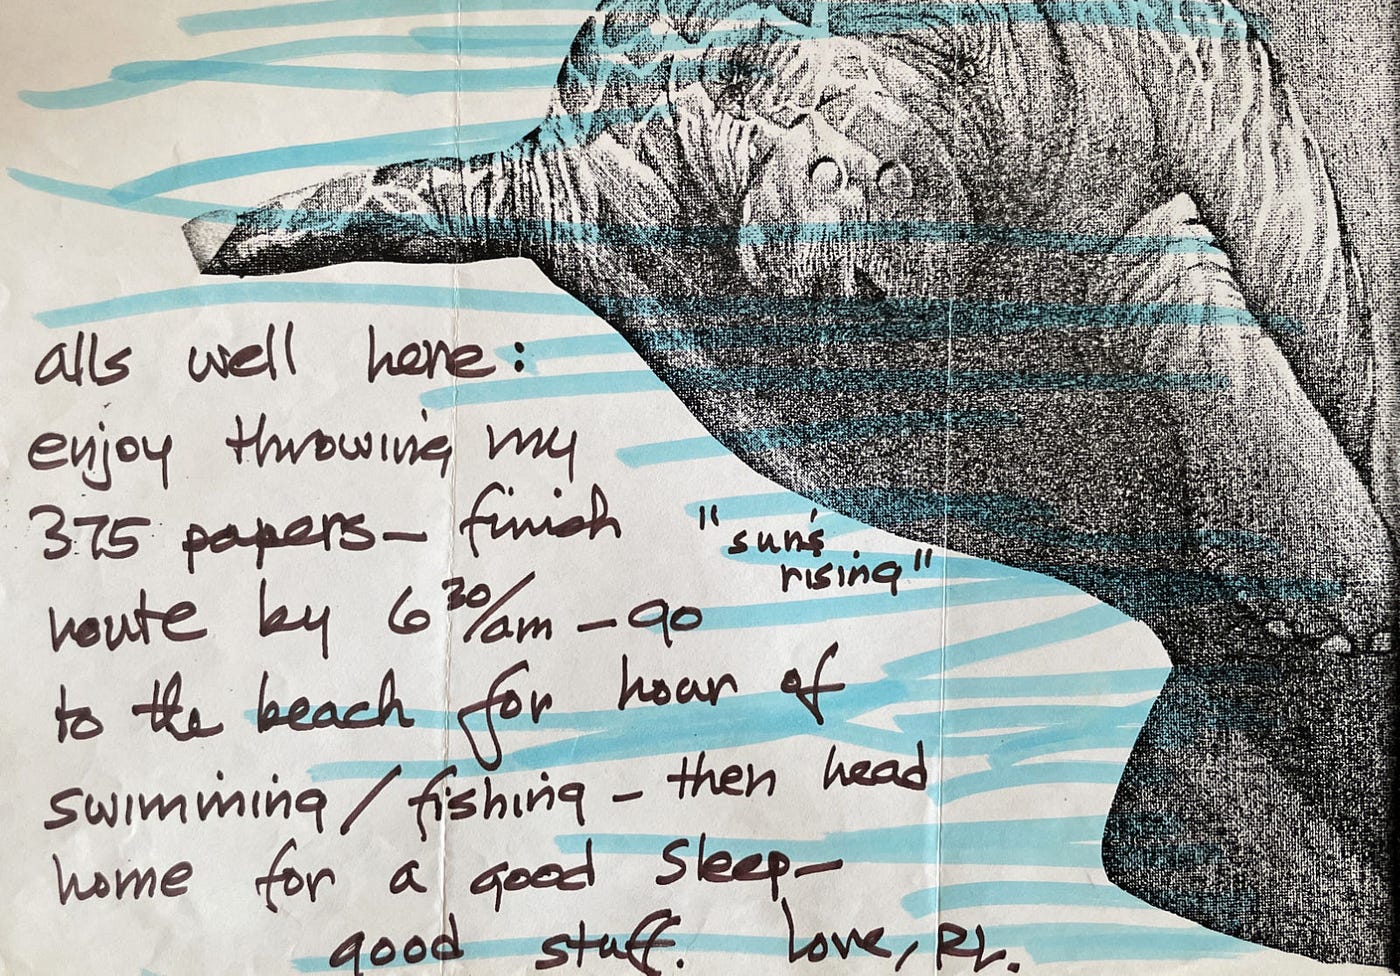 alls well here:
enjoy throwing my
375 papers— finish
"sun's
rising"
route by 6 30/am — go
to the beach for hour of
swimming / fishing — then head
home for a good sleep—
good stuff. Love, RL.